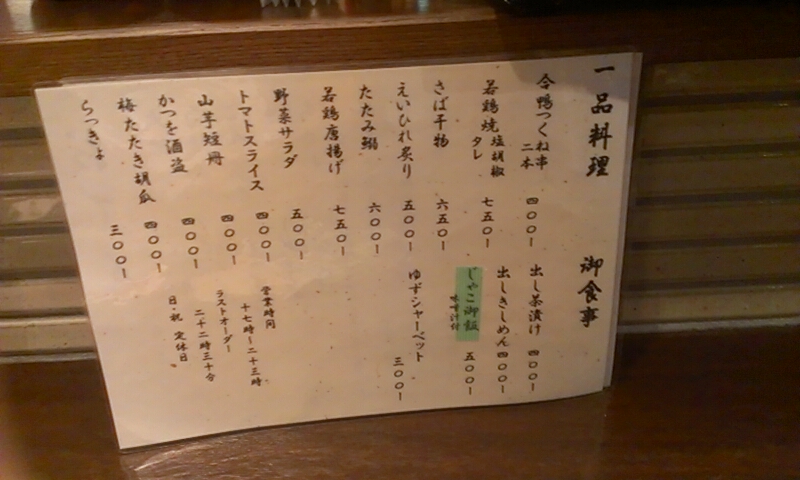 一品料理
合鴨つくね串 二本 四〇〇ー
若鶏焼 塩胡椒 タレ 七五〇ー
さば干物 六五〇ー
えいひれ炙り 五〇〇ー
たたみ鰯 六〇〇ー
若鶏唐揚げ 七五〇ー
野菜サラダ 五〇〇ー
トマトスライス 四〇〇ー
山芋短冊 四〇〇ー
かつを酒盗 四〇〇ー
梅たたき胡瓜 四〇〇ー
らっきょ 三〇〇ー
御食事
出し茶漬け 四〇〇ー
出しきしめん 四〇〇ー
じゃこ御飯 味噌汁付 五〇〇ー
ゆずシャーベット 三〇〇ー
営業時間
十七時〜二十三時
ラストオーダー
二十二時三十分
日・祝 定休日